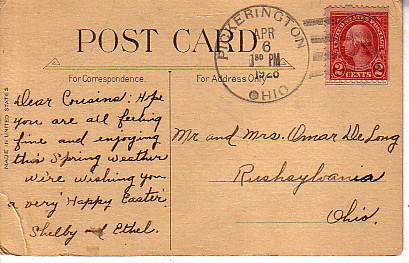 POST CARD
For Correspondence.
For Address Only.
MADE IN UNITED STATES
PICKERINGTON
APR
6
PM
1926
OHIO
2 CENTS 2
Dear Cousins: Hope
you are all feeling
fine and enjoying
this Spring weather
We're wishing you
a very Happy Easter.
Shelby and Ethel.
Mr and Mrs. Omar DeLong
Rushsylvania
Ohio.